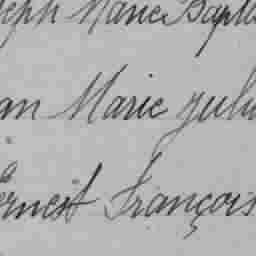 seph Marie Bapti
an Marie Juli
Ernest François